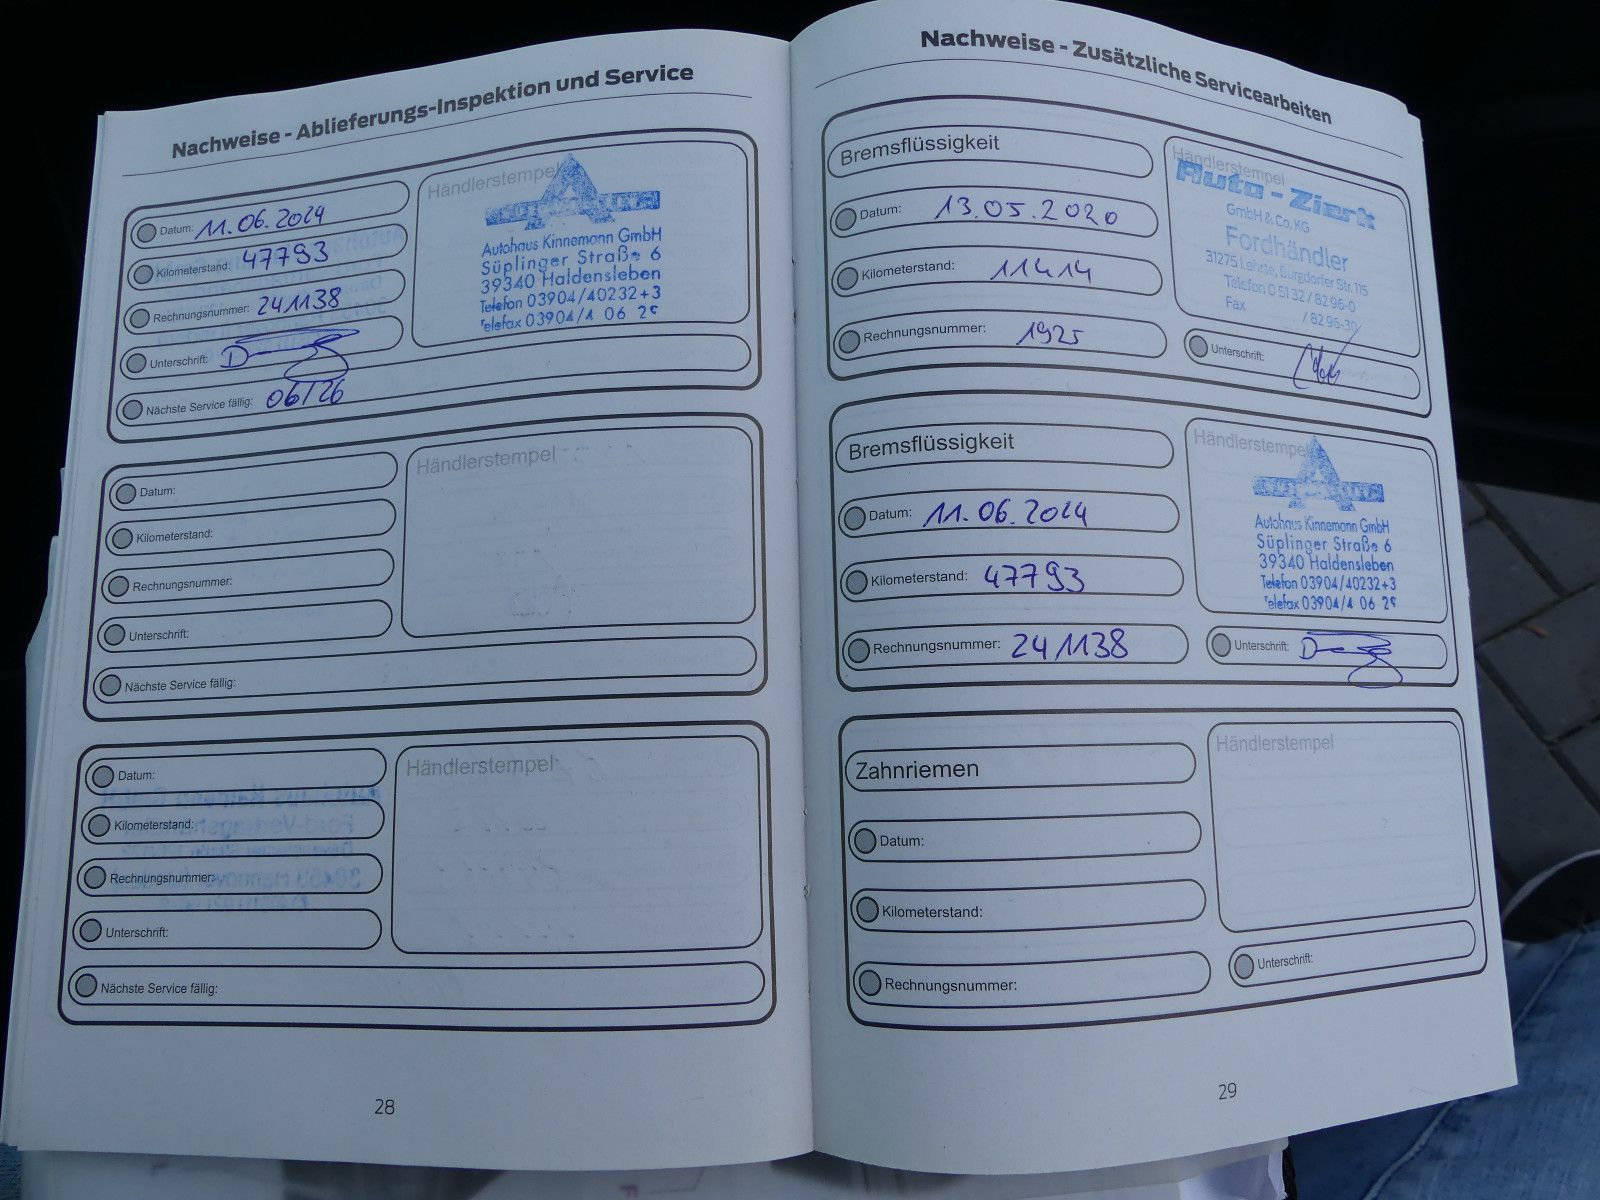 Nachweise - Ablieferungs-Inspektion und Service
Datum: 11.06.2024
Kilometerstand: 47793
Rechnungsnummer: 241138
Unterschrift:
Nächste Service fällig: 06/26
Händlerstempel
Autohaus Kinnemann GmbH
Süplinger Straße 6
39340 Haldensleben
Telefon 03904/40232+3
Telefax 03904/4 06 2
Datum:
Kilometerstand:
Rechnungsnummer:
Unterschrift:
Nächste Service fällig:
Händlerstempel
Datum:
Kilometerstand:
Rechnungsnummer:
Unterschrift:
Nächste Service fällig:
Händlerstempel
28
Nachweise - Zusätzliche Servicearbeiten
Bremsflüssigkeit
Datum: 13.05.2020
Kilometerstand: 11414
Rechnungsnummer: 1925
Händlerstempel
Auto - Zierk
GmbH & Co. KG
Fordhändler
31275 Lehrte, Burgdorfer Str. 115
Telefon 0 51 32 / 82 96-0
Fax / 82 96-30
Unterschrift:
Bremsflüssigkeit
Datum: 11.06.2024
Kilometerstand: 47793
Rechnungsnummer: 241138
Händlerstempel
Autohaus Kinnemann GmbH
Süplinger Straße 6
39340 Haldensleben
Telefon 03904/40232+3
Telefax 03904/4 06 2
Unterschrift:
Zahnriemen
Datum:
Kilometerstand:
Rechnungsnummer:
Händlerstempel
Unterschrift:
29